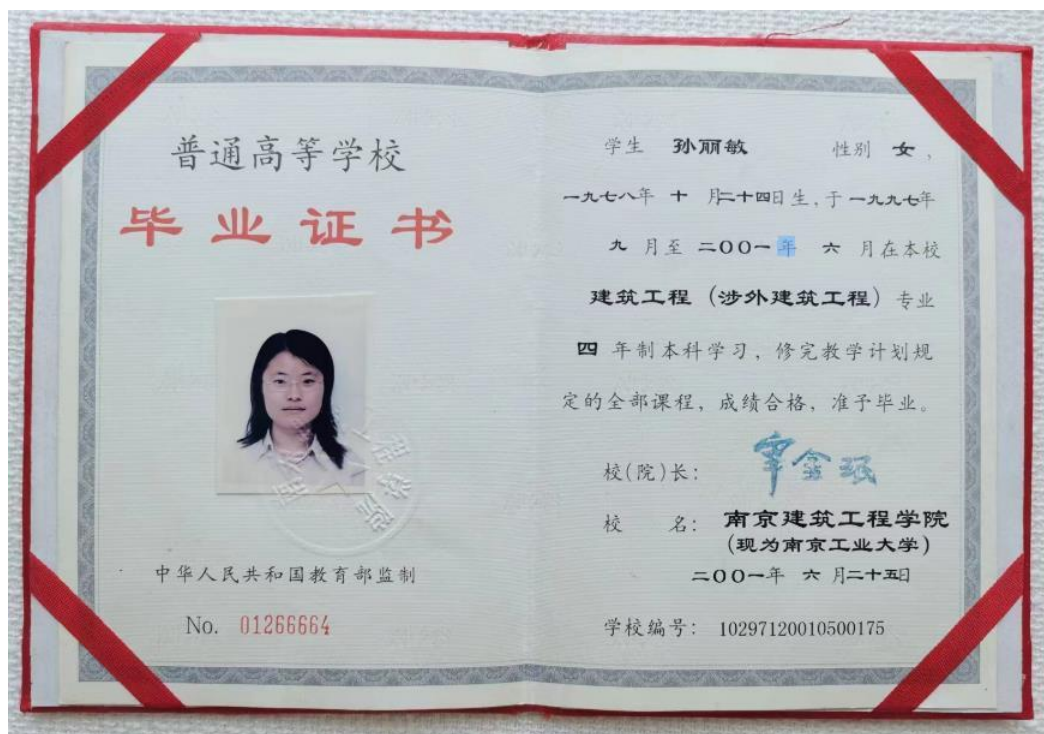 普通高等学校
毕业证书
中华人民共和国教育部监制
No. 01266664
学生 孙丽敏 性别 女，
一九七八年 十 月二十四日生，于一九九七年
九 月至 二〇〇一年 六 月在本校
建筑工程（涉外建筑工程）专业
四 年制本科学习，修完教学计划规
定的全部课程，成绩合格，准予毕业。
校(院)长：
校 名：南京建筑工程学院
(现为南京工业大学)
二〇〇一年 六 月二十五日
学校编号：10297120010500175